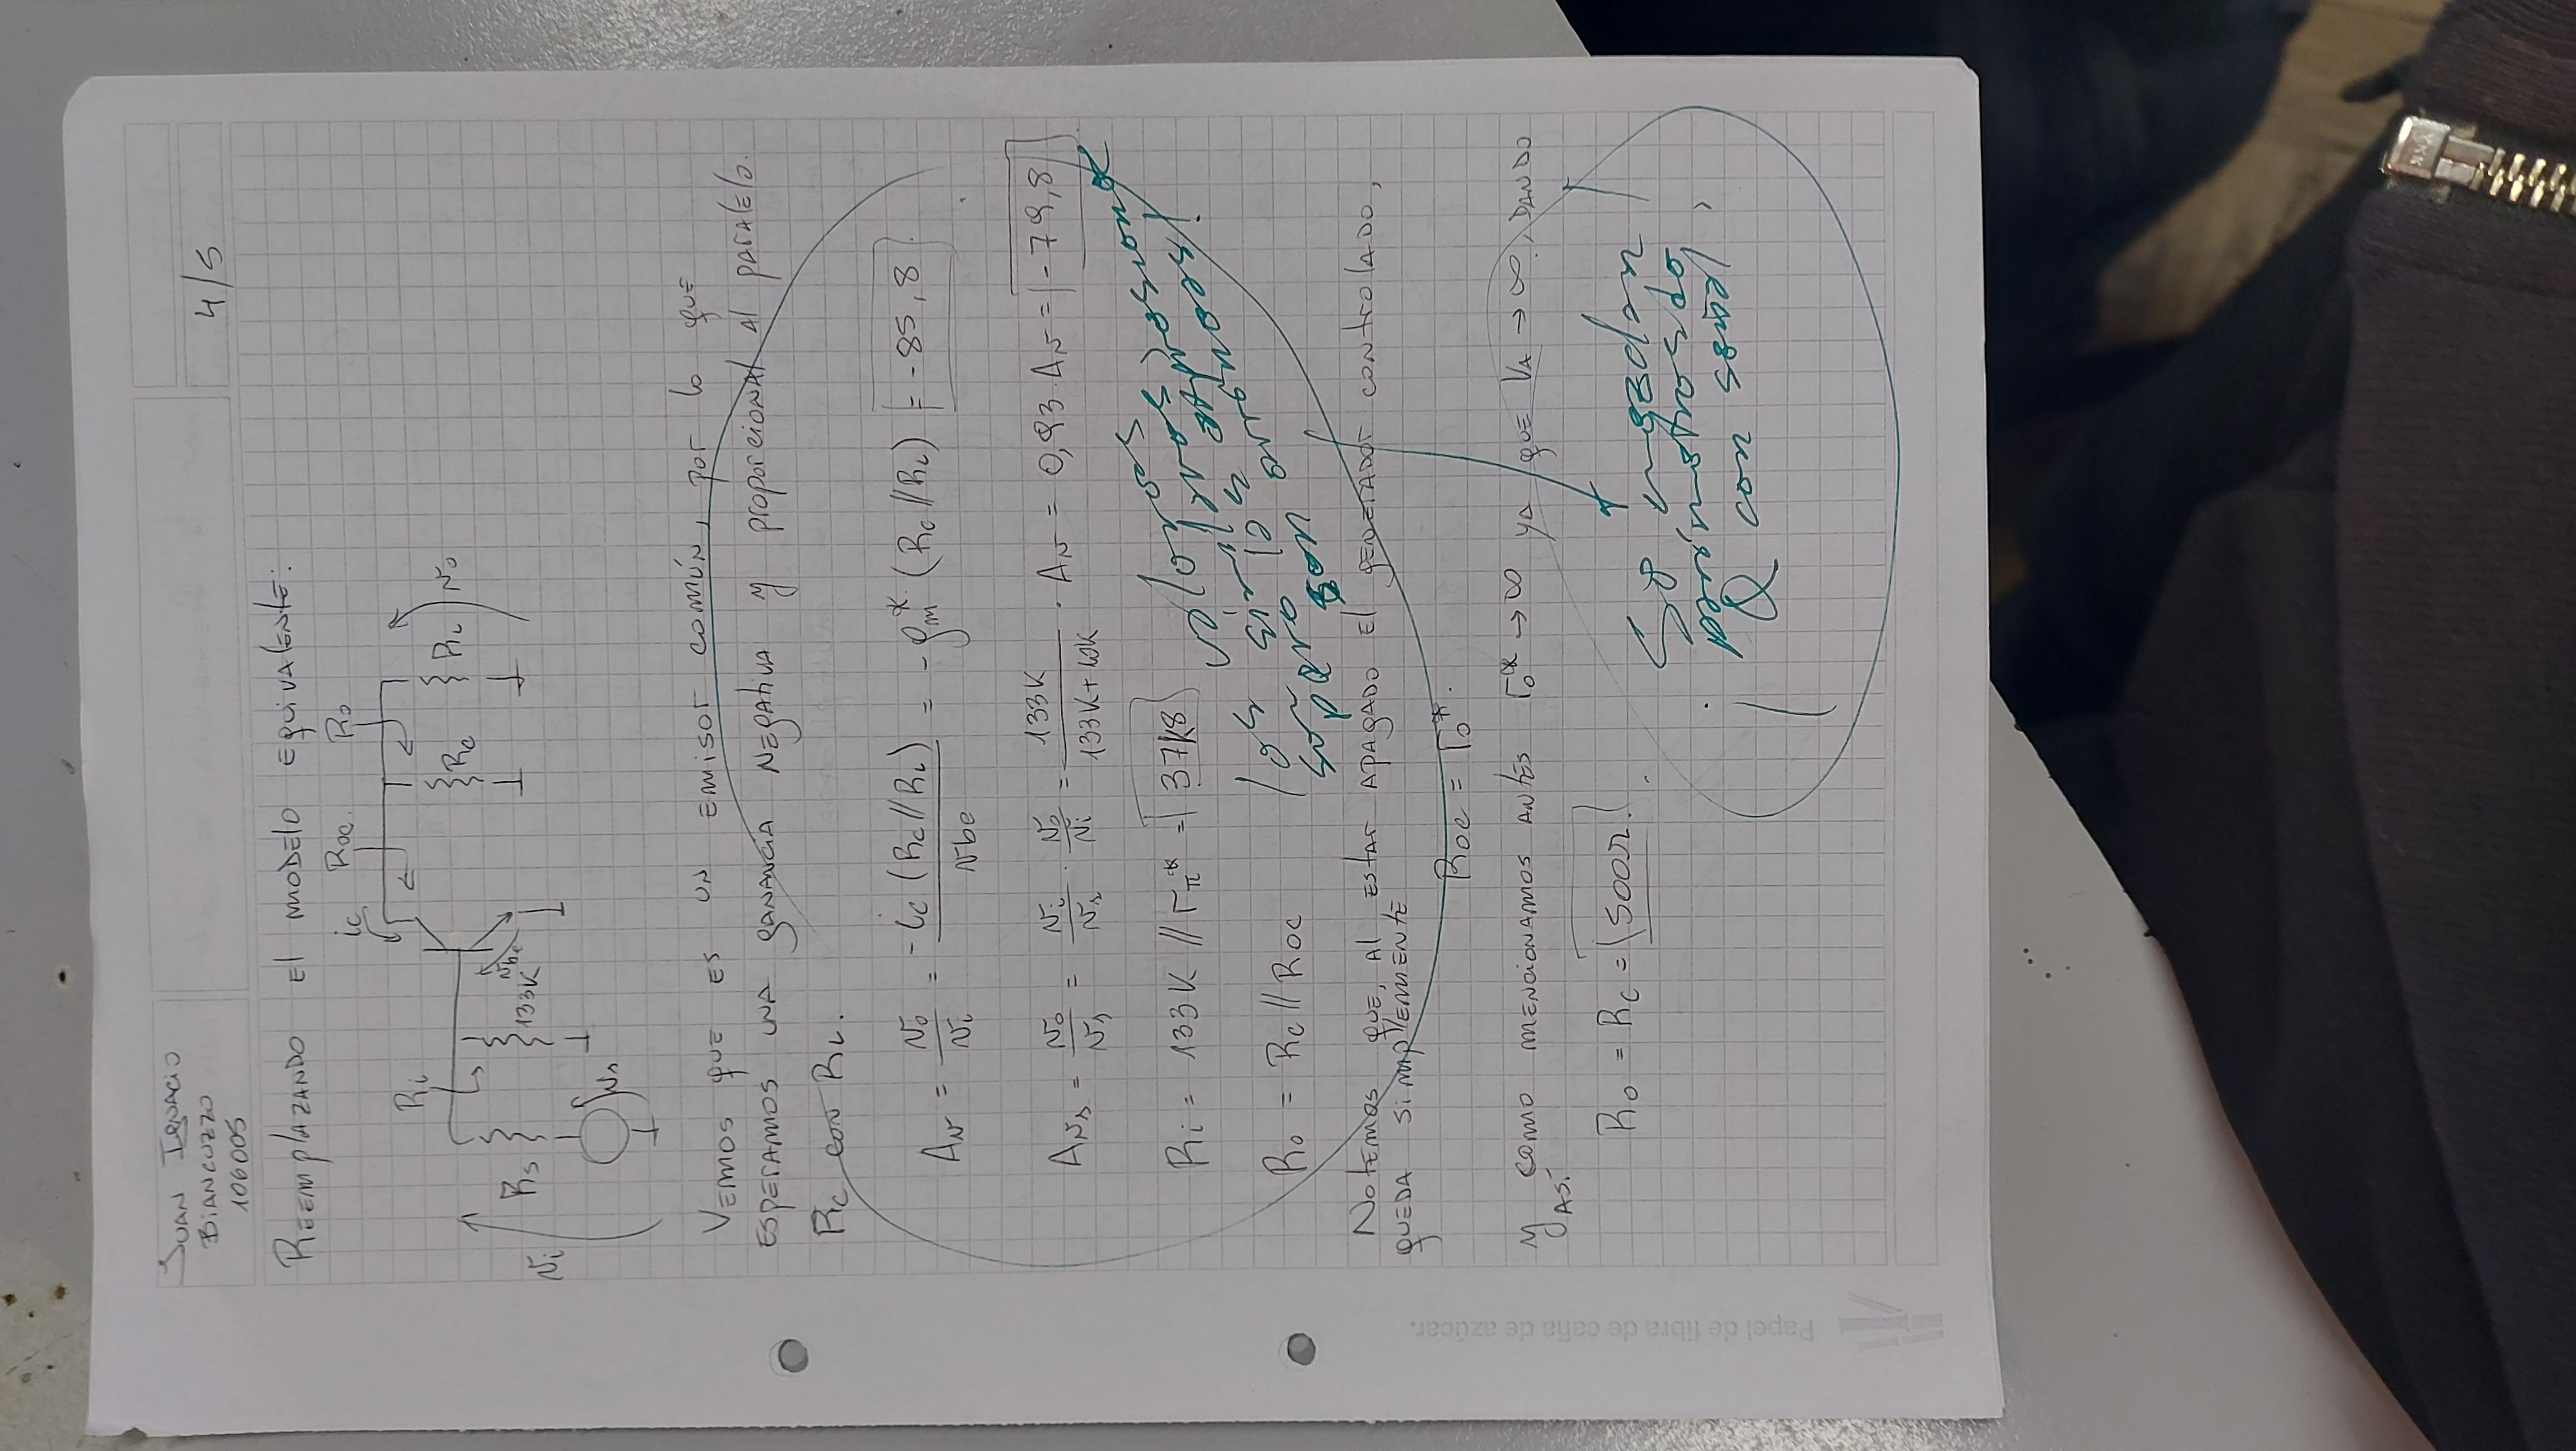 JUAN IGNACIO
BIANCUZZO
106005
4/5
REEMPLAZANDO EL MODELO EQUIVALENTE:
ic Roc Ro
Ri
Rc RL vo
Rs 133K vbe
vi
vs
VEMOS QUE ES UN EMISOR COMÚN, POR LO QUE
ESPERAMOS UNA GANANCIA NEGATIVA Y PROPORCIONAL AL PARALELO
RC CON RL.
Av = vo/vi = -ic (Rc//RL)/vbe = -gm* (Rc//RL) = -85,8
Avs = vo/vs = vi/vs · vo/vi = 133K/(133K+10K) · Av = 0,93 Av = -79,8
Ri = 133K // rπ* = 37K8
Ro = Rc // Roc
los valores
sin *, los
para el es expresiona
son
NOTEMOS QUE, AL ESTAR APAGADO EL GENERADOR CONTROLADO,
QUEDA SIMPLEMENTE
Roc = ro*.
Y COMO MENCIONAMOS ANTES ro* → ∞ YA QUE VA → ∞, DANDO
ASÍ
Ro = Rc = 500Ω
Se mezclan
parámetros de
Q con señal
Papel de fibra de caña de azúcar.
YKK